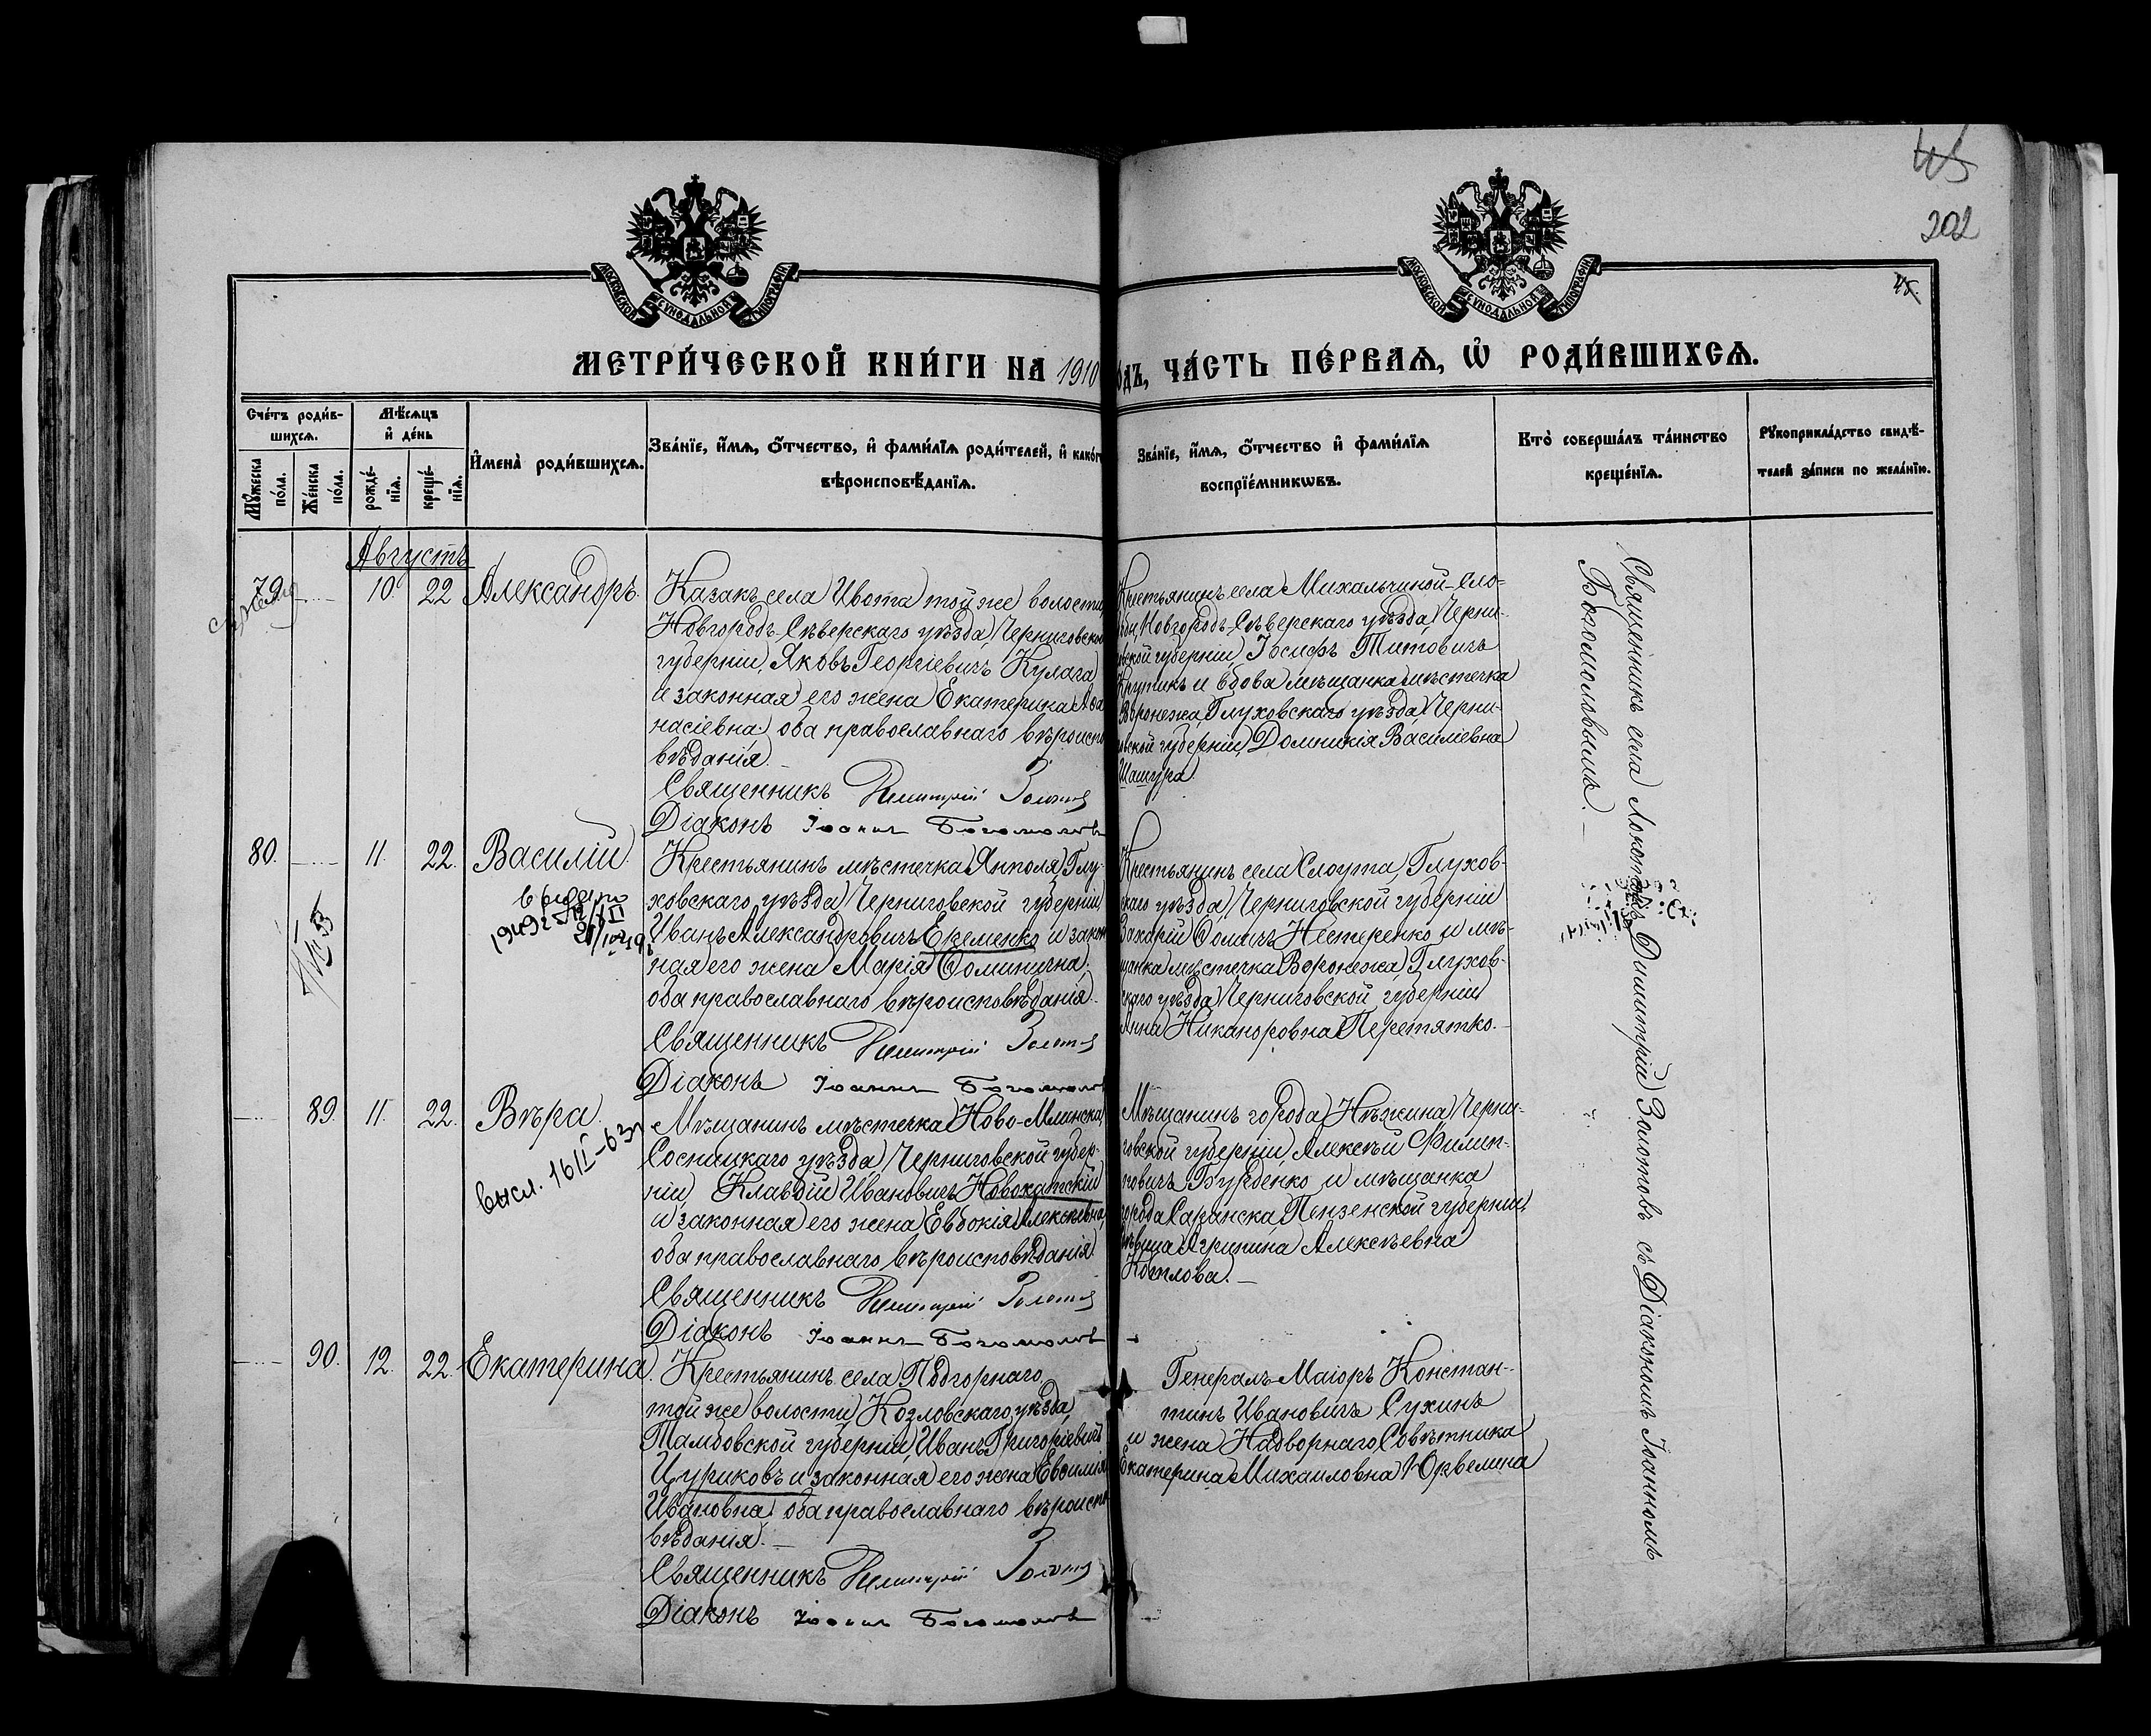 202
МОСКОВСКОЙ СѴНОДАЛЬНОЙ ТИПОГРАФІИ
МОСКОВСКОЙ СѴНОДАЛЬНОЙ ТИПОГРАФІИ
МЕТРИ́ЧЕСКОЙ КНИ́ГИ НА 1910
ОДЪ, ЧА́СТЬ ПЕ́РВАѦ, Ѡ҆ РОДИ́ВШИХСѦ.
Сче́тъ роди́в-
шихсѧ.
Мꙋ́жеска по́ла.
Же́нска по́ла.
Мѣ́сѧцъ
и҆ де́нь
рожде́-
нїѧ.
креще́-
нїѧ.
И҆мена̀ роди́вшихсѧ.
Зва́нїе, и҆́мѧ, ѻ҆́тчество, и҆ фами́лїѧ роди́телей, и҆ како́г
вѣроисповѣ́данїѧ.
Зва́нїе, и҆́мѧ, ѻ҆́тчество и҆ фами́лїѧ
воспрїе́мникѡвъ.
Кто̀ соверша́лъ та́инство
креще́нїѧ.
Рꙋкоприкла́дство свидѣ́-
телей за́писи по жела́нїю.
Августъ
79 10. 22 Александръ.
Казакъ села Ивота той же волости
Новгородъ-Сѣверскаго уѣзда, Черниговской
губерніи, Яковъ Георгіевичъ Кулага
и законная его жена Екатерина Аѳа
насіевна, оба православнаго вѣроиспо
вѣданія.
Священникъ Димитрій Золотов
Діаконъ Іоаннъ Богомолов
Крестьянинъ села Михальчиной-Сло-
боды, Новгородъ-Сѣверскаго уѣзда, Черни-
вской губерніи, Іосифъ Титовичъ
Крупикъ и вдова мѣщанка мѣстечка
Воронежа, Глуховскаго уѣзда, Черни-
овской губерніи, Домникія Василіевна
Шашура.
80. 11. 22. Василій.
1949г.
Крестьянинъ мѣстечка Янполя, Глу-
ховскаго уѣзда, Черниговской губерніи
Иванъ Александровичъ Еременко и закон
ная его жена Марія Ѳоминична,
оба православнаго вѣроисповѣданія.
Священникъ Димитрій Золотов
Діаконъ Іоаннъ Богомолов
Крестьянинъ села Слоута, Глухов-
скаго уѣзда, Черниговской губерніи
Захарій Ѳомичъ Нестеренко и мѣ-
щанка мѣстечка Воронежа, Глухов-
скаго уѣзда, Черниговской губерніи
Анна Никаноровна Перетятко.
89. 11. 22. Вѣра.
высл. 16/I-63г
Мѣщанинъ мѣстечка Ново-Млинска,
Сосницкаго уѣзда, Черниговской губер-
ніи, Клавдій Ивановичъ Новохатскій
и законная его жена Евдокія Алексѣевна,
оба православнаго вѣроисповѣданія.
Священникъ Димитрій Золотов
Діаконъ Іоаннъ Богомолов
Мѣщанинъ города Нѣжина, Черни-
говской губерніи, Алексѣй Филип-
повичъ Буеденко и мѣщанка
города Саранска, Пензенской губерніи,
дѣвица Агрипина Алексѣевна
Котлова.
90. 12. 22. Екатерина.
Крестьянинъ села Подгорнаго,
той же волости, Козловскаго уѣзда,
Тамбовской губерніи, Иванъ Григоріевичъ
Цуриковъ и законная его жена Евѳимія
Ивановна, оба православнаго вѣроиспо
вѣданія.
Священникъ Димитрій Золотов
Діаконъ Іоаннъ Богомолов
Генералъ-Маіоръ Констан-
тинъ Ивановичъ Сухинъ
и жена Надворнаго Совѣтника
Екатерина Михаиловна Юрвелина
Священникъ села Локотковъ Димитрій Золотовъ съ Діакономъ Іоанномъ
Богомоловымъ.